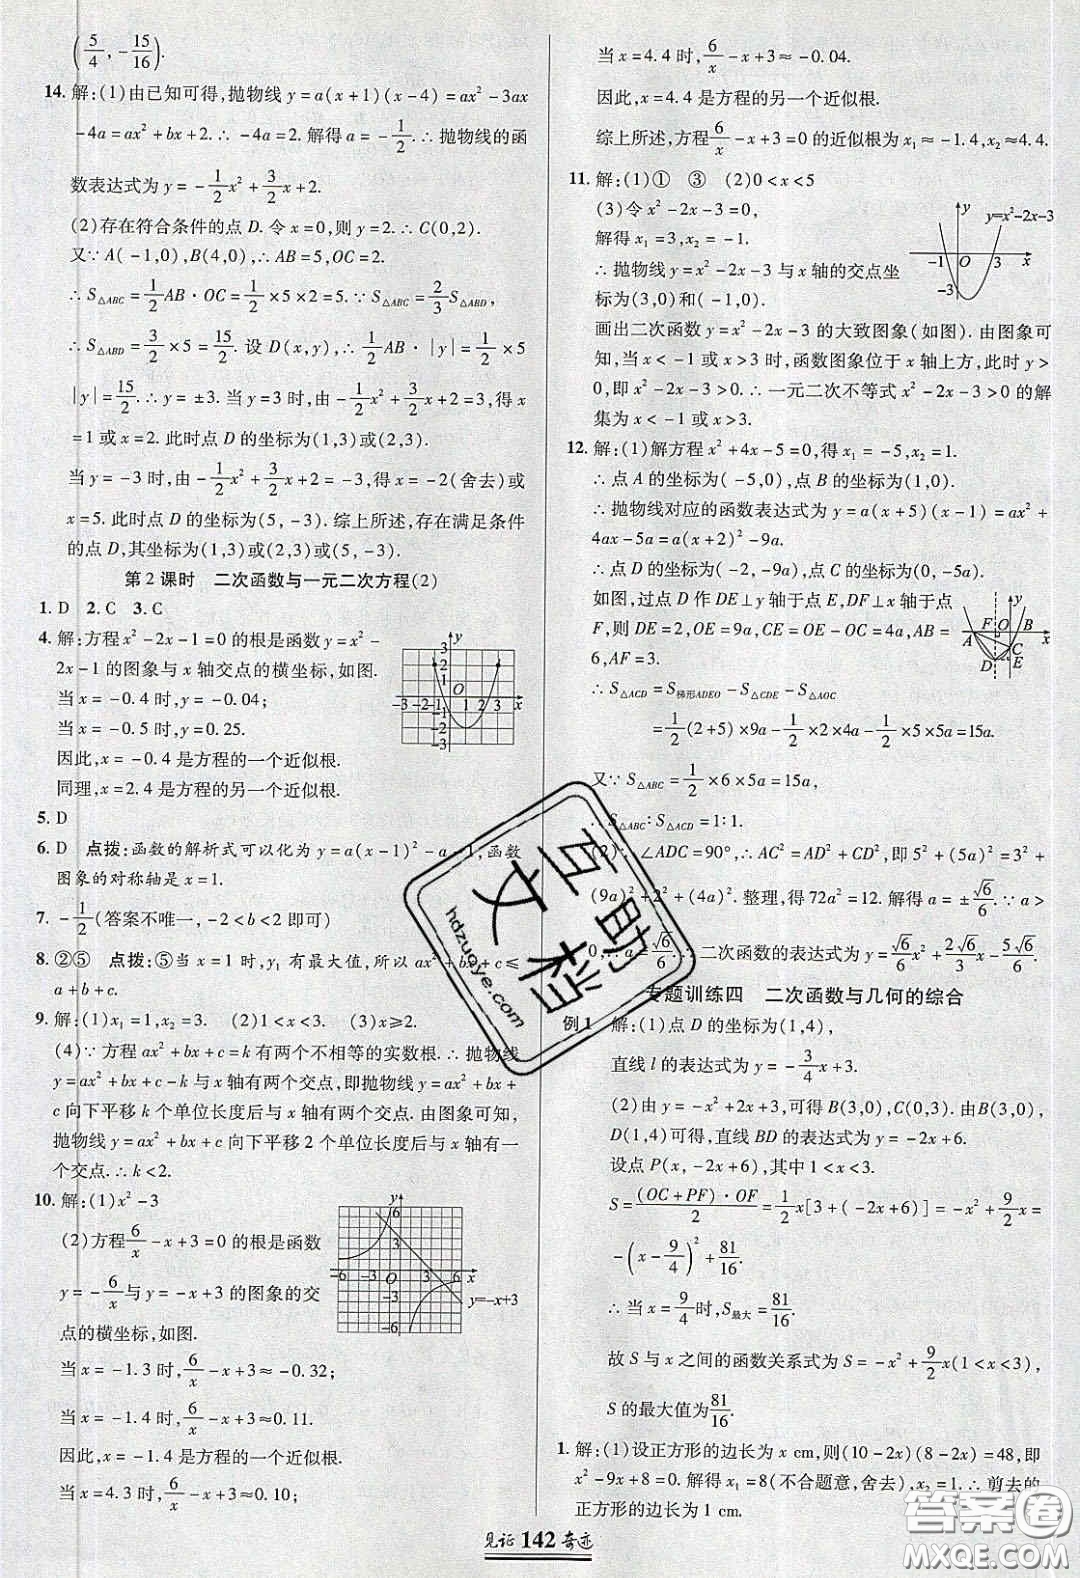 (5/4, -15/16).
14. 解:(1)由已知可得,抛物线 y=a(x+1)(x-4)=ax²-3ax
-4a=ax²+bx+2.∴ -4a=2. 解得 a=-1/2.∴ 抛物线的函
数表达式为 y=-1/2x²+3/2x+2.
(2)存在符合条件的点 D. 令 x=0,则 y=2.∴ C(0,2).
又∵ A(-1,0),B(4,0),∴ AB=5,OC=2.
∴ S△ABC=1/2AB·OC=1/2×5×2=5.∵ S△ABC=2/3S△ABD,
∴ S△ABD=3/2×5=15/2. 设 D(x,y),∴ 1/2AB·|y|=1/2×5
|y|=15/2.∴ y=±3. 当 y=3 时,由-1/2x²+3/2x+2=3,得 x
=1 或 x=2. 此时点 D 的坐标为(1,3)或(2,3).
当 y=-3 时,由-1/2x²+3/2x+2=-3,得 x=-2(舍去)或
x=5. 此时点 D 的坐标为(5,-3). 综上所述,存在满足条件
的点 D,其坐标为(1,3)或(2,3)或(5,-3).
第 2 课时 二次函数与一元二次方程(2)
1. D 2. C 3. C
4. 解:方程 x²-2x-1=0 的根是函数 y=x²-
2x-1 的图象与 x 轴交点的横坐标,如图.
当 x=-0.4 时,y=-0.04;
当 x=-0.5 时,y=0.25.
因此,x=-0.4 是方程的一个近似根.
同理,x=2.4 是方程的另一个近似根.
5. D
6. D 点拨:函数的解析式可以化为 y=a(x-1)²-a-1,函数
图象的对称轴是 x=1.
7. -1/2(答案不唯一,-2<b<2 即可)
8. ②⑤ 点拨:⑤当 x=1 时,y₁ 有最大值,所以 ax²+bx+c≤
a+b+c.
9. 解:(1)x₁=1,x₂=3. (2)1<x<3. (3)x≥2.
(4)∵ 方程 ax²+bx+c=k 有两个不相等的实数根.∴ 抛物线
y=ax²+bx+c-k 与 x 轴有两个交点,即抛物线 y=ax²+bx+
c 向下平移 k 个单位长度后与 x 轴有两个交点. 由图象可知,
抛物线 y=ax²+bx+c 向下平移 2 个单位长度后与 x 轴有一
个交点.∴ k<2.
10. 解:(1)x²-3
(2)方程6/x-x+3=0 的根是函数
y=-6/x与 y=-x+3 的图象的交
点的横坐标,如图.
y=-x+3
当 x=-1.3 时,6/x-x+3≈-0.32;
当 x=-1.4 时,6/x-x+3≈0.11.
因此,x=-1.4 是方程的一个近似根.
当 x=4.3 时,6/x-x+3≈0.10;
当 x=4.4 时,6/x-x+3≈-0.04.
因此,x=4.4 是方程的另一个近似根.
综上所述,方程6/x-x+3=0 的近似根为 x₁≈-1.4,x₂≈4.4.
11. 解:(1)① ③ (2)0<x<5
(3)令 x²-2x-3=0,
解得 x₁=3,x₂=-1.
∴ 抛物线 y=x²-2x-3 与 x 轴的交点坐
标为(3,0)和(-1,0).
y=x²-2x-3
画出二次函数 y=x²-2x-3 的大致图象(如图). 由图象可
知,当 x<-1 或 x>3 时,函数图象位于 x 轴上方,此时 y>
0,即 x²-2x-3>0.∴ 一元二次不等式 x²-2x-3>0 的解
集为 x<-1 或 x>3.
12. 解:(1)解方程 x²+4x-5=0,得 x₁=-5,x₂=1.
∴ 点 A 的坐标为(-5,0),点 B 的坐标为(1,0).
∴ 抛物线对应的函数表达式为 y=a(x+5)(x-1)=ax²+
4ax-5a=a(x+2)²-9a.
∴ 点 D 的坐标为(-2,-9a),点 C 的坐标为(0,-5a).
如图,过点 D 作 DE⊥y 轴于点 E,DF⊥x 轴于点
F,则 DE=2,OE=9a,CE=OE-OC=4a,AB=
6,AF=3.
∴ S△ACD=S梯形ADEO-S△CDE-S△AOC
=1/2(2+5)×9a-1/2×2×4a-1/2×5×5a=15a.
又∵ S△ABC=1/2×6×5a=15a,
∴ S△ABC:S△ACD=1:1.
(2)∵ ∠ADC=90°,∴ AC²=AD²+CD²,即 5²+(5a)²=3²+
(9a)²+2²+(4a)². 整理,得 72a²=12. 解得 a=±√6/6.∵ a>
0,∴ a=√6/6.∴ 二次函数的表达式为 y=√6/6x²+2√6/3x-5√6/6.
专题训练四 二次函数与几何的综合
例 1 解:(1)点 D 的坐标为(1,4),
直线 l 的表达式为 y=-3/4x+3.
(2)由 y=-x²+2x+3,可得 B(3,0),C(0,3). 由 B(3,0),
D(1,4)可得,直线 BD 的表达式为 y=-2x+6.
设点 P(x,-2x+6),其中 1<x<3.
S=(OC+PF)·OF/2=1/2x[3+(-2x+6)]=-x²+9/2x=
-(x-9/4)²+81/16.
∴ 当 x=9/4时,S最大=81/16.
故 S 与 x 之间的函数关系式为 S=-x²+9/2x(1<x<3),
S 的最大值为81/16.
1. 解:(1)设正方形的边长为 x cm,则(10-2x)(8-2x)=48,即
x²-9x+8=0. 解得 x₁=8(不合题意,舍去),x₂=1.∴ 剪去的
正方形的边长为 1 cm.
见证 142 奇迹
互助文档
hdzuoye.com
答案圈
MXQE.COM